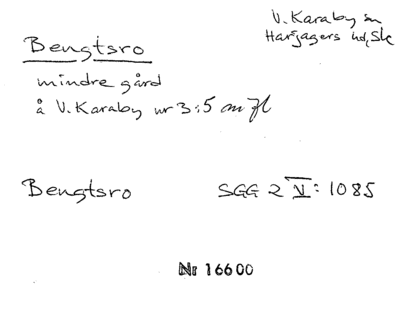 V. Karaby sn
Harjagers hd, Sk
Bengtsro
mindre gård
å V. Karaby nr 3:5 m fl
Bengtsro SGG 2 V: 1085
Nr 16600